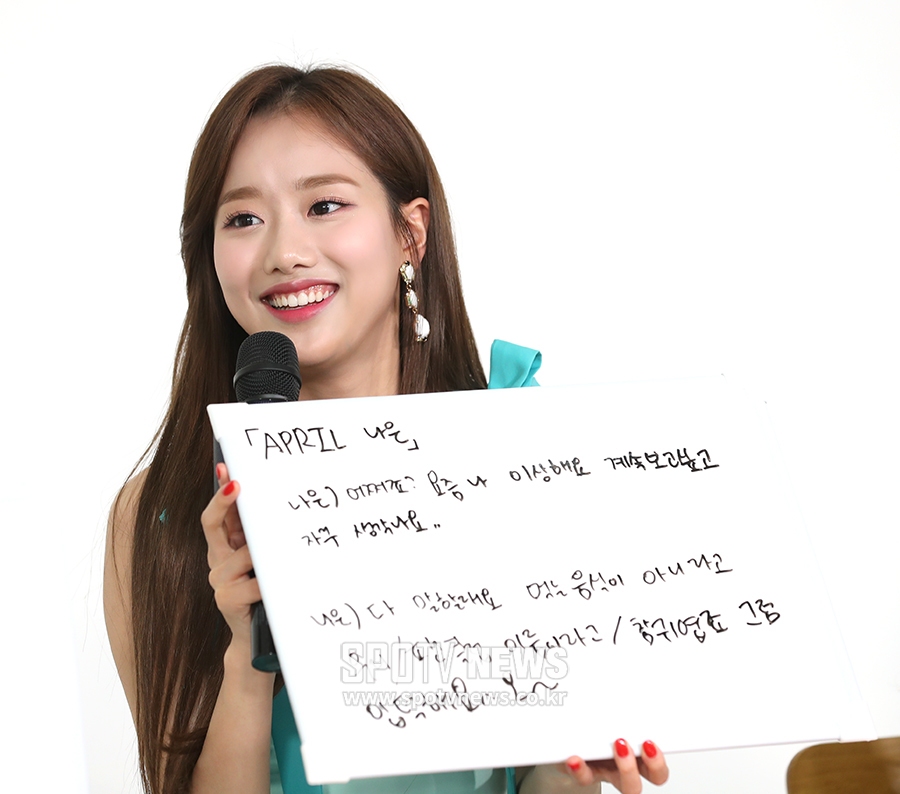 「APRIL 나은」
나은) 어쩌죠? 요즘 나 이상해요 계속보고싶고
자꾸 생각나요..
나은) 다 말할래요 먹는 음식이 아니라고
이루나라고 / 참귀엽죠 그럼
SPOTV NEWS
www.spotvnews.co.kr